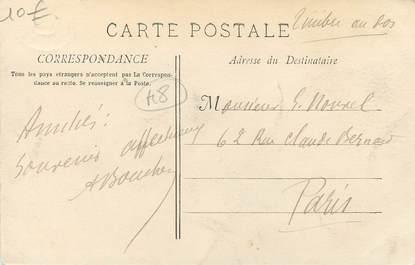 10£
CARTE POSTALE
Timbre au dos
CORRESPONDANCE
Tous les pays étrangers n'acceptent pas La Correspon-
dance au recto. Se renseigner à la Poste.
48
Amitiés!
Souvenir affectueux
Adresse du Destinataire
Monsieur
62 Rue Claude Bernard
Paris